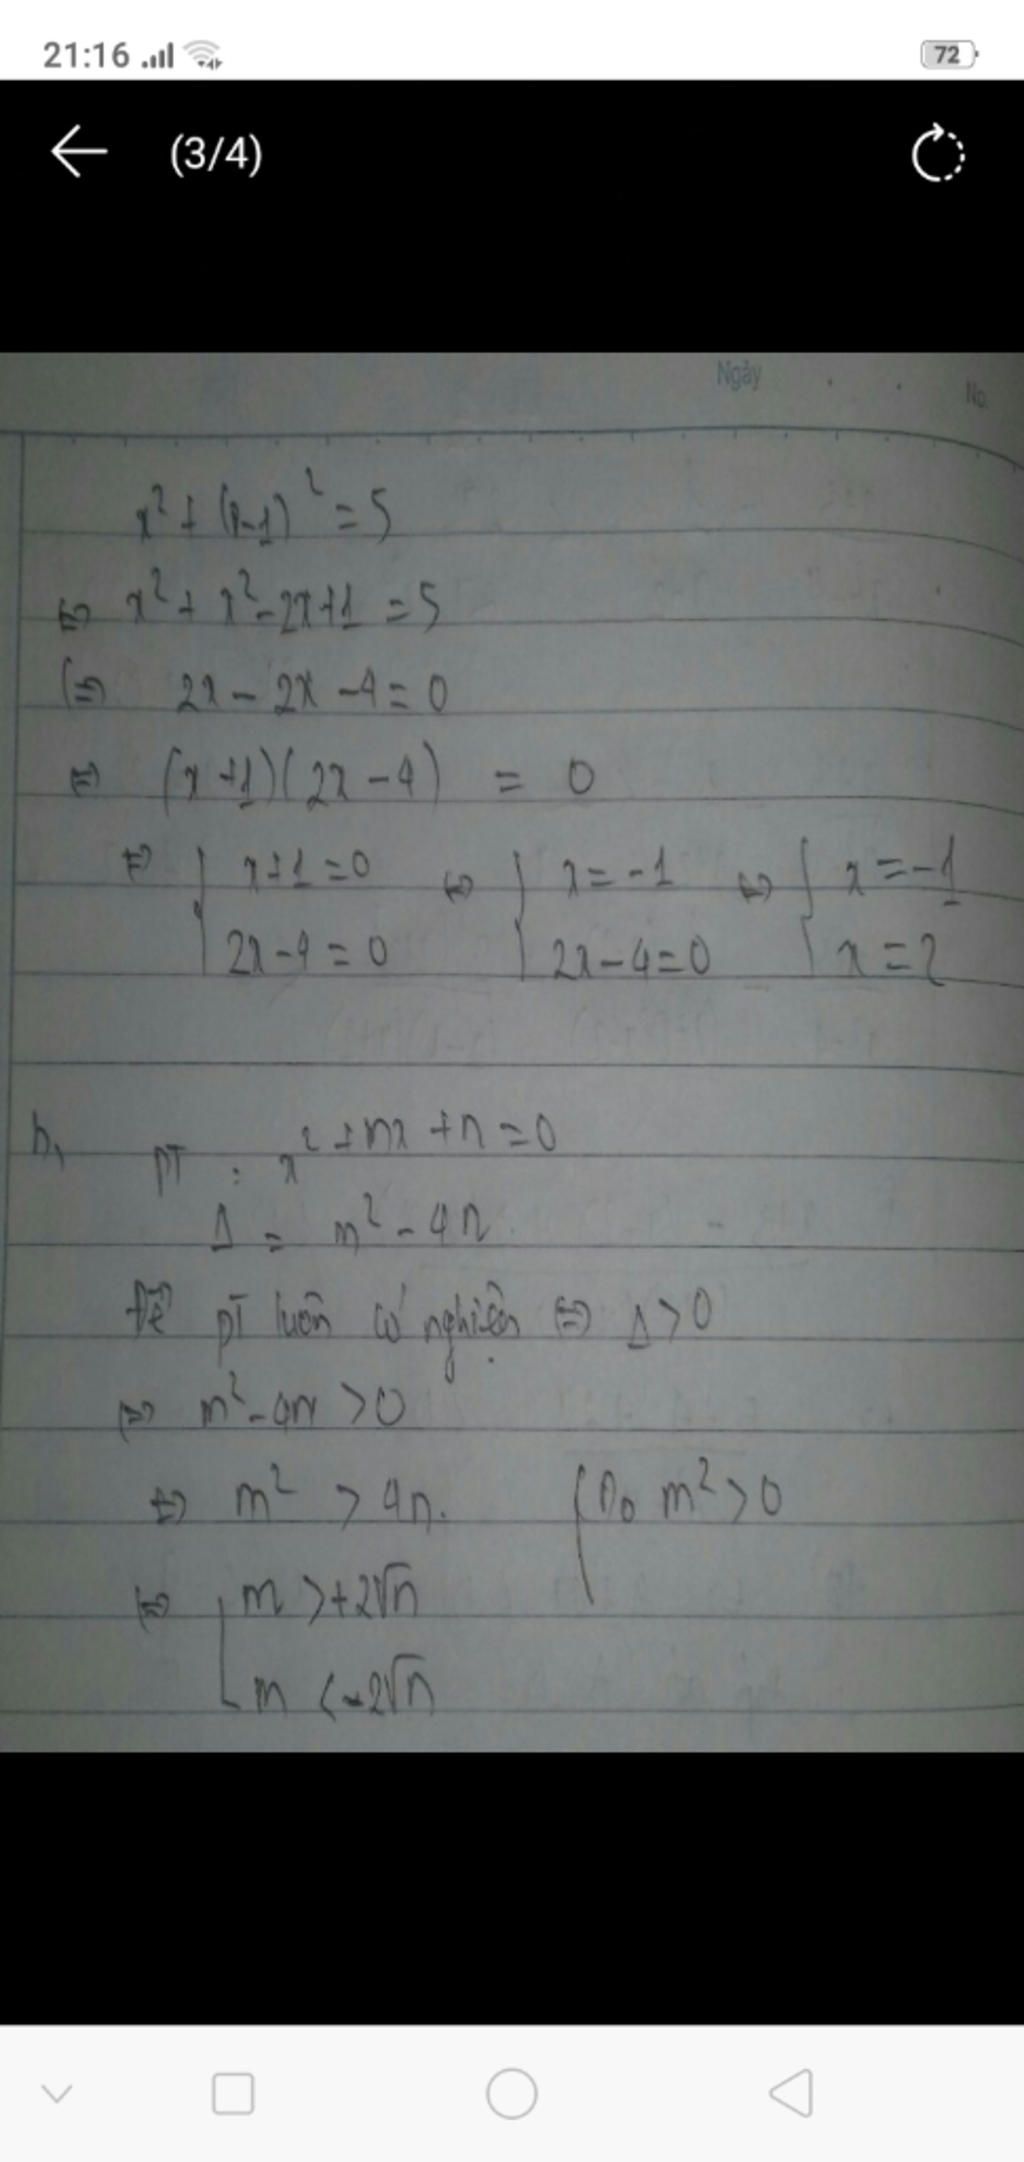 21:16
72
(3/4)
Ngày
No.
x² + (x-1)² = 5
⇔ x² + x² - 2x + 1 = 5
⇔ 2x - 2x - 4 = 0
⇔ (x + 1)(2x - 4) = 0
⇔ { x + 1 = 0 ⇔ { x = -1 ⇔ { x = -1
2x - 4 = 0 2x - 4 = 0 x = 2
b, PT : x² + mx + n = 0
Δ = m² - 4n
Để pT luôn có nghiện ⇔ Δ > 0
⇔ m² - 4n > 0
⇔ m² > 4n. ( Do m² > 0
⇔ [ m > +2√n
m < -2√n